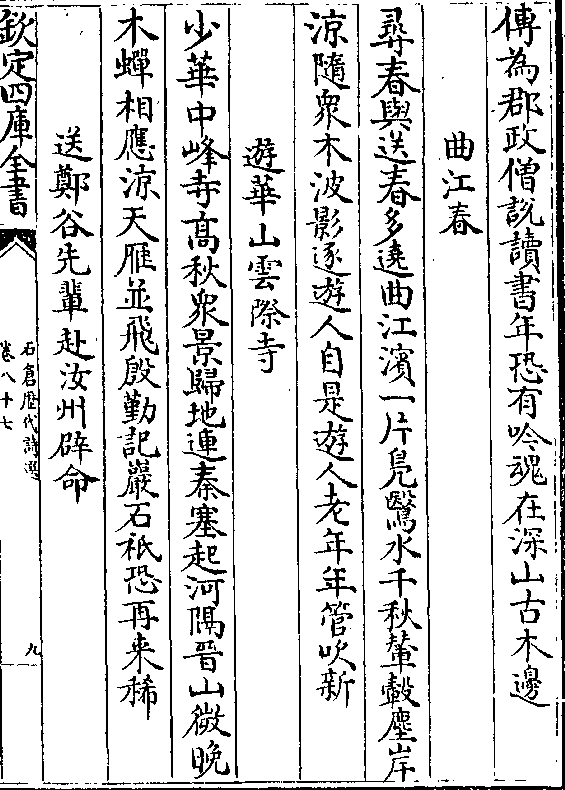 傳為郡政僧說讀書年恐有吟魂在深山古木邊
曲江春
尋春與送春多遶曲江濱一片鳬鷖水千秋輦轂塵岸
涼隨衆木波影逐遊人自是遊人老年年管吹新
遊華山雲際寺
少華中峰寺髙秋衆景歸地連秦塞起河隔晉山微晚
木蟬相應涼天雁並飛殷勤記巖石祇恐再来稀
送鄭谷先輩赴汝州辟命
欽定四庫全書
石倉歴代詩選
卷八十七
九